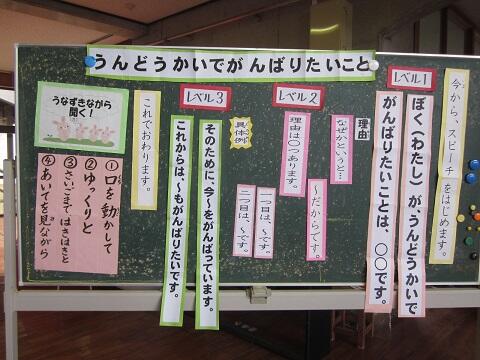 うんどうかいでがんばりたいこと
今から、スピーチをはじめます。
レベル1
ぼく(わたし)が、うんどうかいで
がんばりたいことは、〇〇です。
理由
なぜかというと…
〜だからです。
レベル2
理由は〇つあります。
一つ目は、〜です。
二つ目は、〜です。
具体例
レベル3
そのために、今〜をがんばっています。
これからは、〜もがんばりたいです。
これでおわります。
うなずきながら
聞く!
①口を動かして
②ゆっくりと
③さいごまではきはきと
④あいてを見ながら